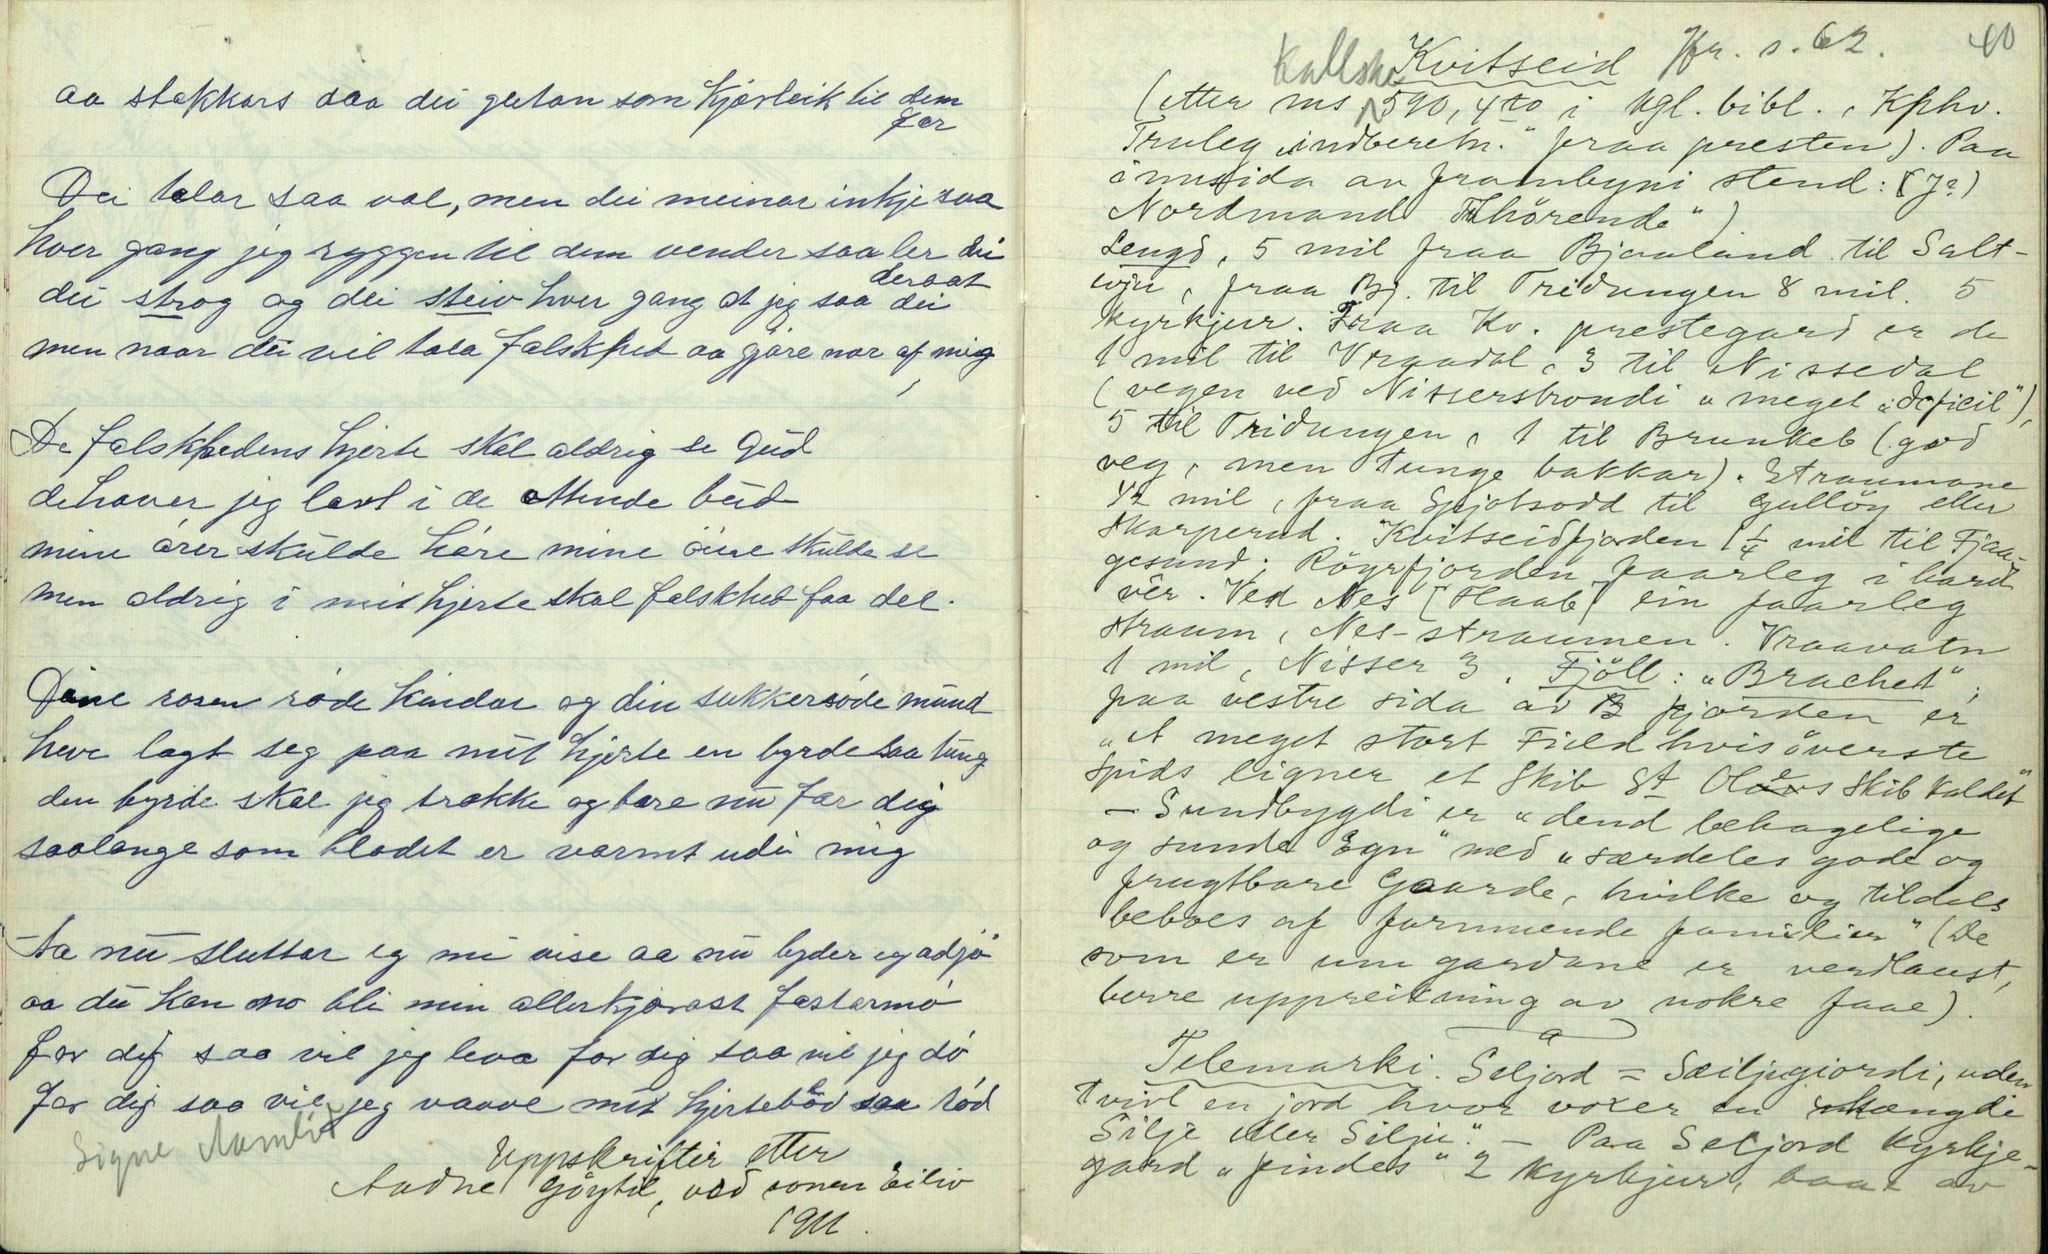 aa stakkars daa dei gutan som kjærleik til dem
fær
Dei talar saa val, men dei meinar inkje saa
hver gang jeg ryggen til dem vender saa ler dei
deraat
dei strog og dei steiv hver gang at jeg saa dei
men naar dei vil tala falskhed aa gjøre nar af mig
De falskhedens hjerte skal aldrig se Gud
de haver jeg lært i de ottende bud
mine ører skulde høre mine öine skulde se
men aldrig i mit hjerte skal falskhed faa del.
Dine rosen røde kinder og din sukkersøde mund
heve lagt seg paa mit hjerte en byrde saa tung
den byrde skal jeg trække og bære nu for dig
saalænge som blodet er varmt udi mig
Aa nu sluttar eg mi vise aa nu byder eg adjø
aa du kan no bli min allerkjærast fæstarmø
for dig saa vil jeg leva for dig saa vil jeg dø
for dig saa vil jeg vaave mit hjerteblod saa rød
Signe Aamlid
Uppskrifter etter
Aadne Göytil, ved sonen Eiliv
1911.
40
Kvitseid Jfr. s. 62.
Kallske
(etter ms 590, 4to i kgl. bibl., Kphv.
Truleg „indberetn." fraa presten). Paa
innsida av frambyni stend: (J?)
Nordmand Tilhörende")
Lengd, 5 mil fraa Bjaaland til Salt-
evju, fraa Bj. til Tridungen 8 mil. 5
kyrkjur. Fraa Kv. prestegard er de
1 mil til Vraadal, 3 til Nissedal
(vegen ved Nisserstrondi „meget „deficil"),
5 til Tridungen, 1 til Brunkeb (god
veg, men tunge bakkar). Straumane
1/2 mil, fraa Spjotsodd til Gulløy eller
Skarperud. Kvitseidfjorden 1 1/4 mil til Fjaa-
gesund; Röyrfjorden faarleg i hardt
vêr. Ved Nes [Haab] ein faarleg
straum, Nes-straumen. Vraavatn
1 mil, Nisser 3. Fjöll: „Brachet";
paa vestre sida av fjorden er
„et meget stort Field hvis överste
Spids ligner et Skib St Olaves Skib kaldet"
– Sundbygdi er „dend behagelige
og sunde Egn" med „særdeles gode og
frugtbare Gaarde, hvilke og tildels
beboes af formuende familier" (De
som er um gardane er verdlaust,
berre uppreikning av nokre faae).
Telemarki. Seljord = Sæiljegiordi, uden
tvivl en jord hvor voxer en mængde
Silje eller Silju." – Paa Seljord kyrkje-
gard „findes" 2 kyrkjur, baae av